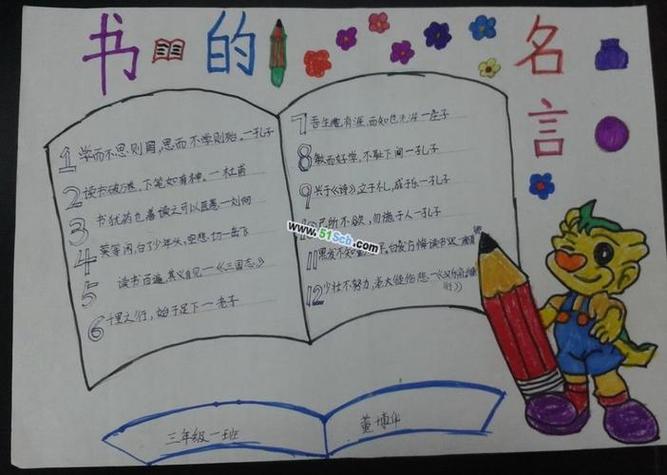 书的名言
1 学而不思则罔,思而不学则殆。—孔子
2 读书破万卷,下笔如有神。—杜甫
3 书犹药也,善读之可以医愚—刘向
4 莫等闲,白了少年头,空悲切—岳飞
5 读书百遍,其义自见—《三国志》
6 千里之行,始于足下—老子
7 吾生也有涯,而知也无涯—庄子
8 敏而好学,不耻下问—孔子
9 兴于《诗》,立于礼,成于乐—孔子
10 己所不欲,勿施于人—孔子
11 黑发不知 白首方悔读书迟—
12 少壮不努力,老大徒伤悲—《汉乐府 行》
www.51Scb.com
三年级一班
董博